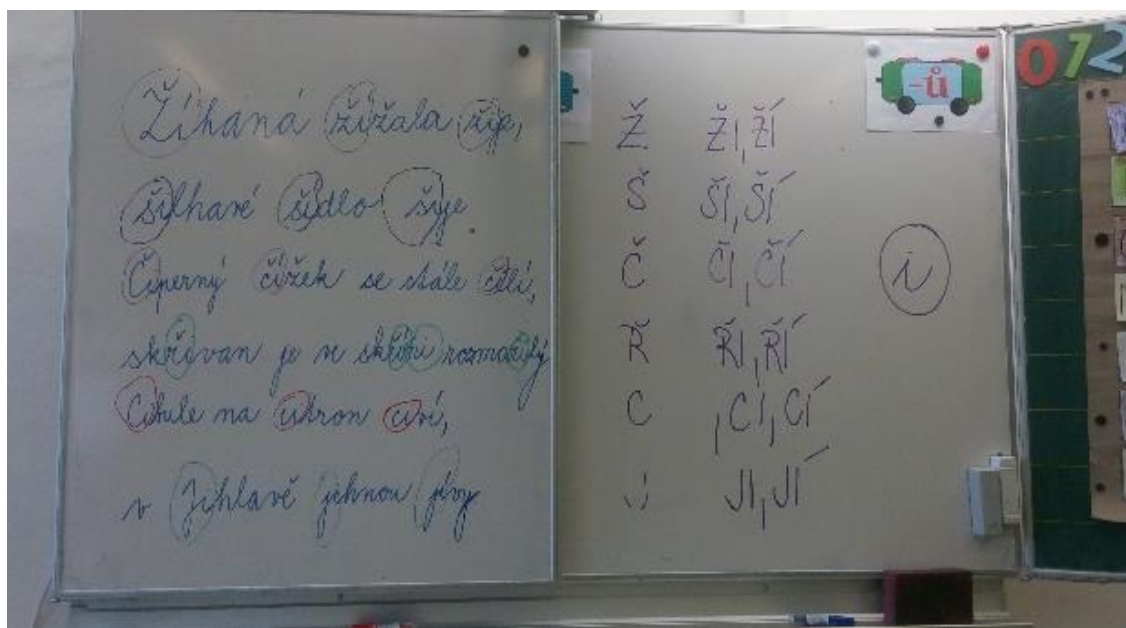 Žíhaná žížala žije,
šilhavé šidlo šije
Čiperný čížek se stále čílí,
skřivan je ve skříni rozmařilý
Cibule na citron civí,
v Jihlavě jihnou jívy
Ž ŽI, ŽÍ
Š ŠI, ŠÍ
Č ČI, ČÍ
Ř ŘI, ŘÍ
C , CI, CÍ
J JI, JÍ
i
-ů
012